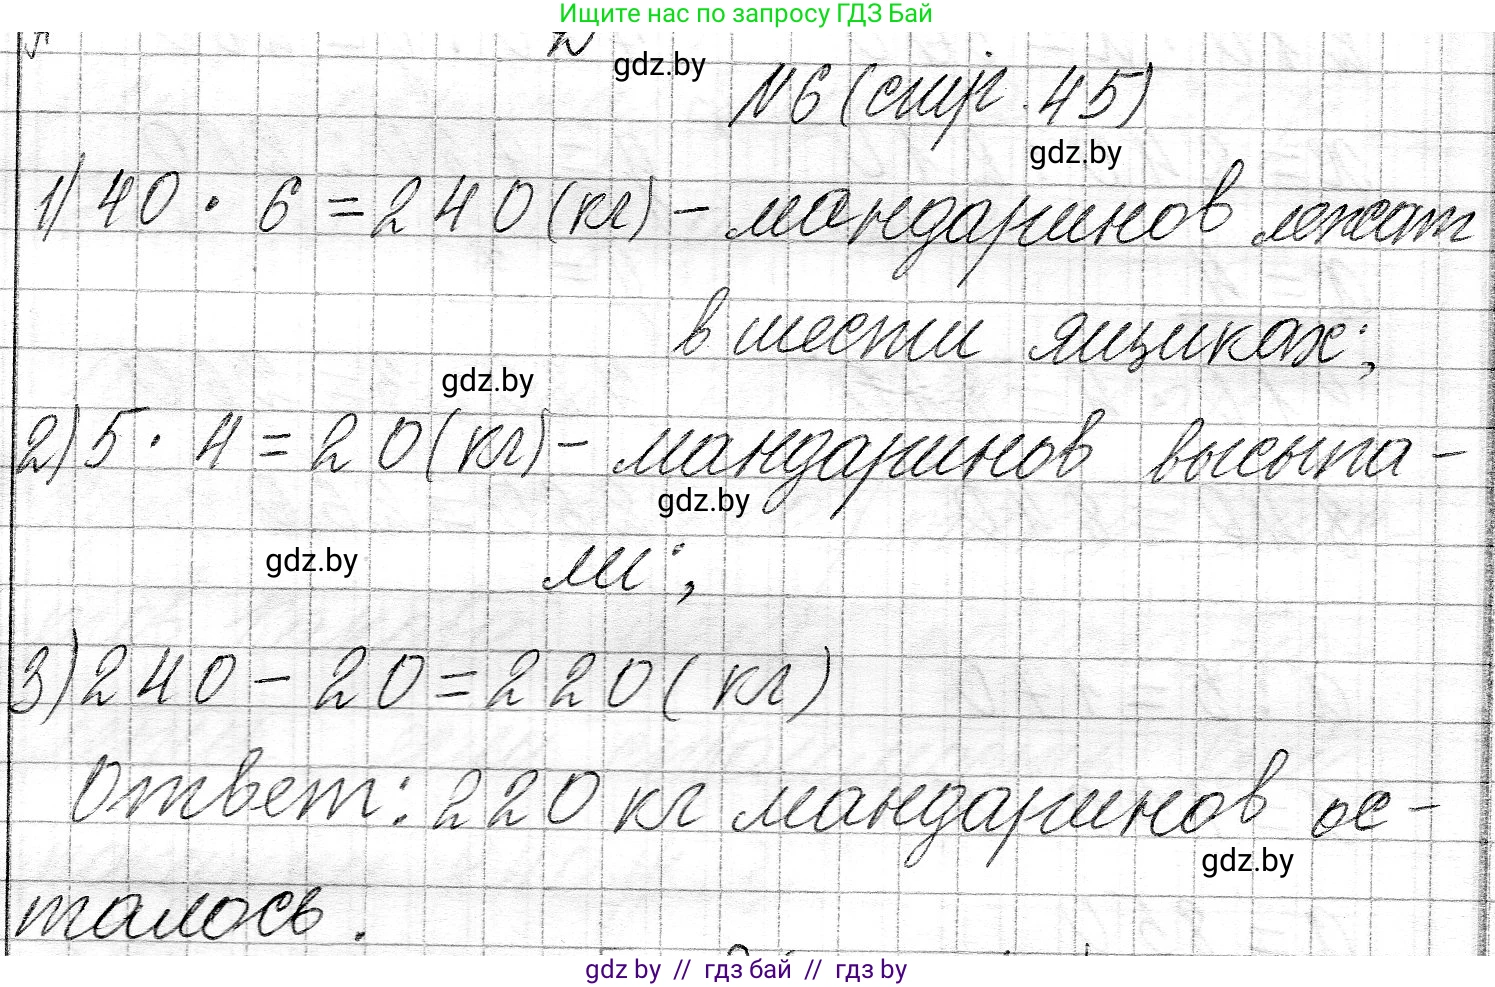 Ищите нас по запросу ГДЗ Бай
gdz.by
№6 (стр. 45)
gdz.by
1) 40 · 6 = 240 (кг) - мандаринов лежат
в шести ящиках;
gdz.by
2) 5 · 4 = 20 (кг) - мандаринов высыпа-
gdz.by
gdz.by
ли;
3) 240 - 20 = 220 (кг)
Ответ: 220 кг мандаринов ос-
gdz.by
талось.
gdz by // гдз бай // гдз by